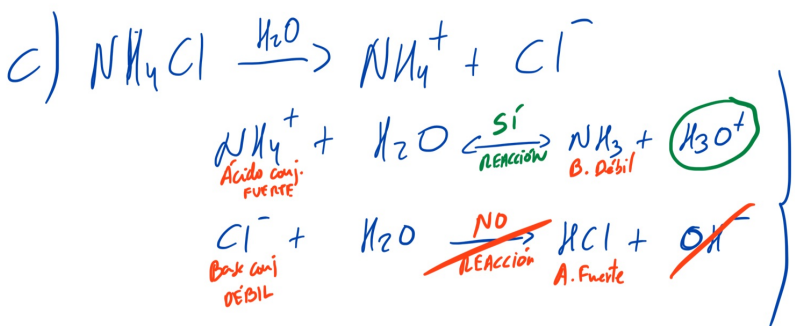 c) NH4Cl H2O → NH4+ + Cl-
NH4+ + H2O SÍ REACCIÓN ⟷ NH3 + H3O+
Ácido conj. FUERTE B. Débil
Cl- + H2O NO REACCIÓN → HCl + OH-
Base conj DÉBIL A. Fuerte